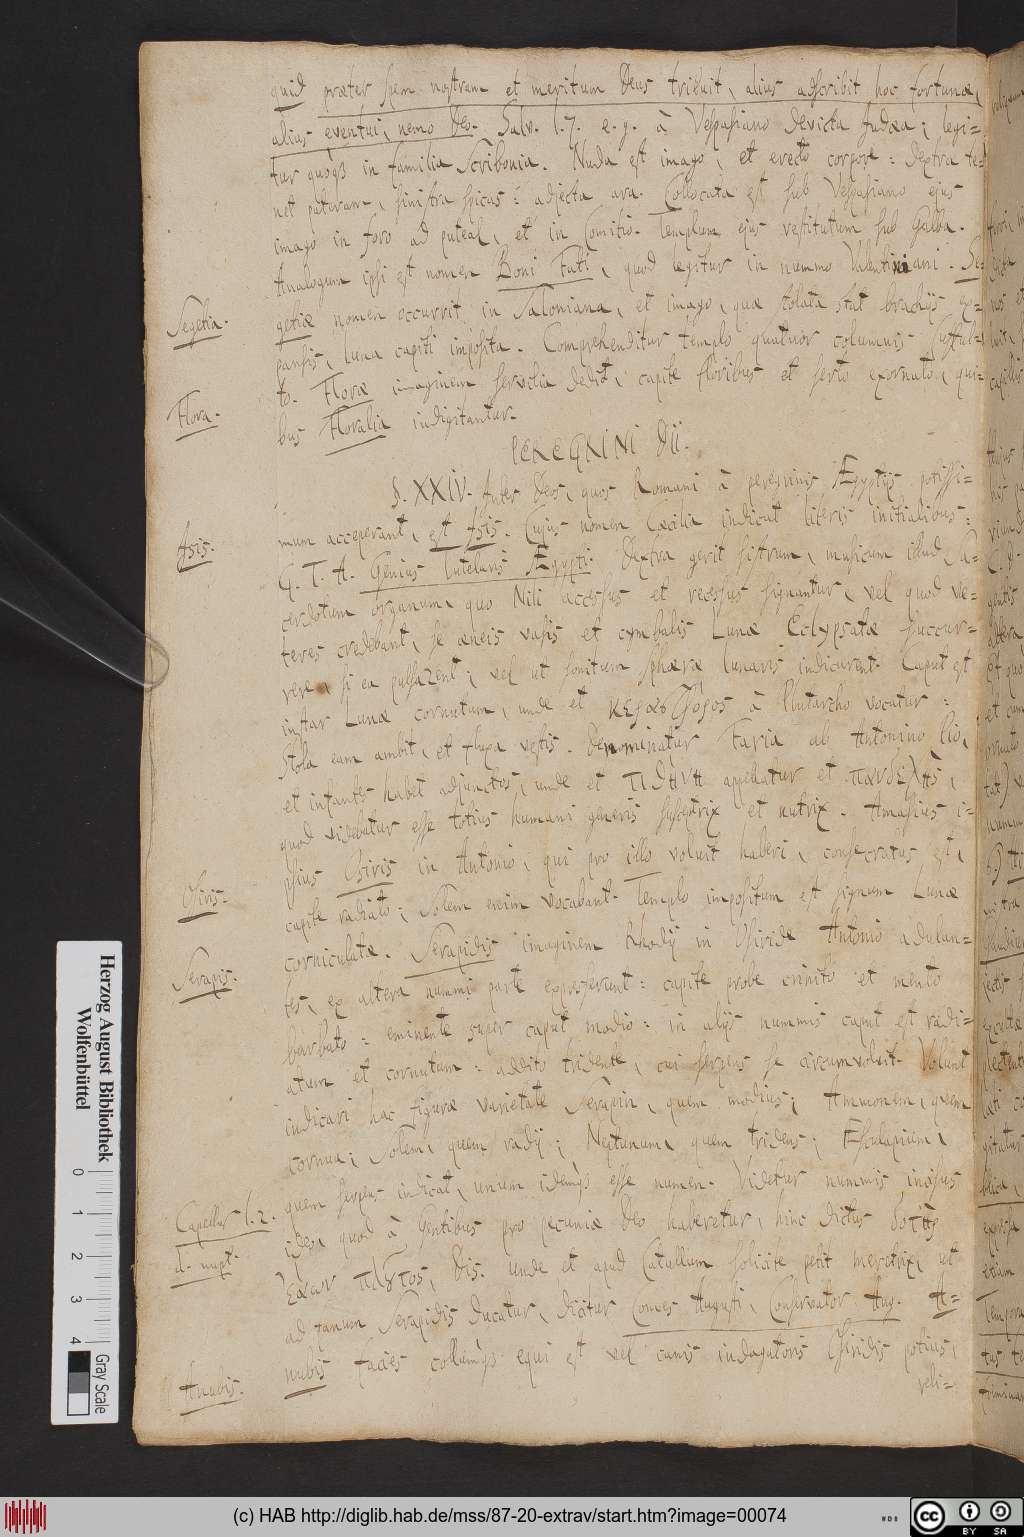 quid præter spem nostram et meritum Deus tribuit, alius adscribit hoc fortunæ,
alius eventui, nemo Deo. Salv. l. 7. e. g. à Vespasiano devicta Judæa; legi=
tur quoqs in familia Scribonia. Nuda est imago, et erecto corpore: dextra te=
net pateram, sinistra spicas: adjecta ara. Collocata est sub Vespasiano ejus
imago in foro ad puteal, et in Comitio. Templum ejus restitutum sub Galba.
Analogum ipsi est nomen Boni Fati, quod legitur in nummo Valentiniani. Se=
Segetia.
getiæ nomen occurrit in Saloniana, et imago, quæ stolata stat brachijs ex=
pansis, luna capiti imposita. Comprehenditur templo quatuor columnis sufful=
Flora.
to. Floræ imaginem Servilia dedit, capite floribus et serto exornato, qui=
bus Floralia indigitantur.
PEREGRINI DII.
§. XXIV. Inter Deos, quos Romani à peregrinis Ægyptijs potissi=
Isis.
mum acceperant, est Isis. Cujus nomen Cæcilia indicat literis initialibus:
G. T. A. Genius Tutelaris Ægypti. Dextra gerit sistrum, musicum illud Sa=
cerdotum organum, quo Nili accessus et recessus signantur, vel quod ve=
teres credebant, se æneis vasis et cymbalis Lunæ Eclypsatæ succur=
rere, si ea pulsarent; vel ut sonitum sphæræ lunaris indicarent. Caput est
instar Lunæ cornutum, unde et κεραόσφορος à Plutarcho vocatur:
Stola eam ambit, et fluxa vestis. Denominatur Faria ab Antonino Pio,
et infantes habet adjunctos, unde et τιθήνη appellatur et πανδεχὴς,
quod videbatur esse totius humani generis susceptrix et nutrix. Amasius i=
Osiris.
psius Osiris in Antonio, qui pro illo voluit haberi, consecratus est,
capite radiato; Solem enim vocabant. Templo impositum est signum Lunæ
Serapis.
corniculatæ. Serapidis imaginem Rhodij in Osiride Antonio adulan=
tes, ex altera nummi parte expresserunt: capite probe crinito et mento
barbato: eminente super caput modio: in alijs nummis caput est radi=
atum et cornutum: addito tridente, cui serpens se circumvoluit. Volunt
indicari hac figuræ varietate Serapin, quem modius; Ammonem, quem
cornua; Solem, quem radij; Neptunum, quem tridens; Esculapium,
Capellus l. 2.
quem serpens indicat, unum idemqs esse numen. Videtur nummis incisus
d. nupt.
ideo, quod à Gentibus pro pecuniæ Deo haberetur, hinc dictus δοτὴρ
Dis. Unde et apud Catullum solicite petit meretrix, ut
ad tanum Serapidis ducatur, dicitur Comes Augusti, Conservator Aug. A=
Anubis.
nubis facies collumqs equi est vel canis indagatoris Osiridis potius,
veli=
Herzog August Bibliothek
Wolfenbüttel
0 1 2 3 4
Gray Scale
(c) HAB http://diglib.hab.de/mss/87-20-extrav/start.htm?image=00074
WDB
cc BY SA